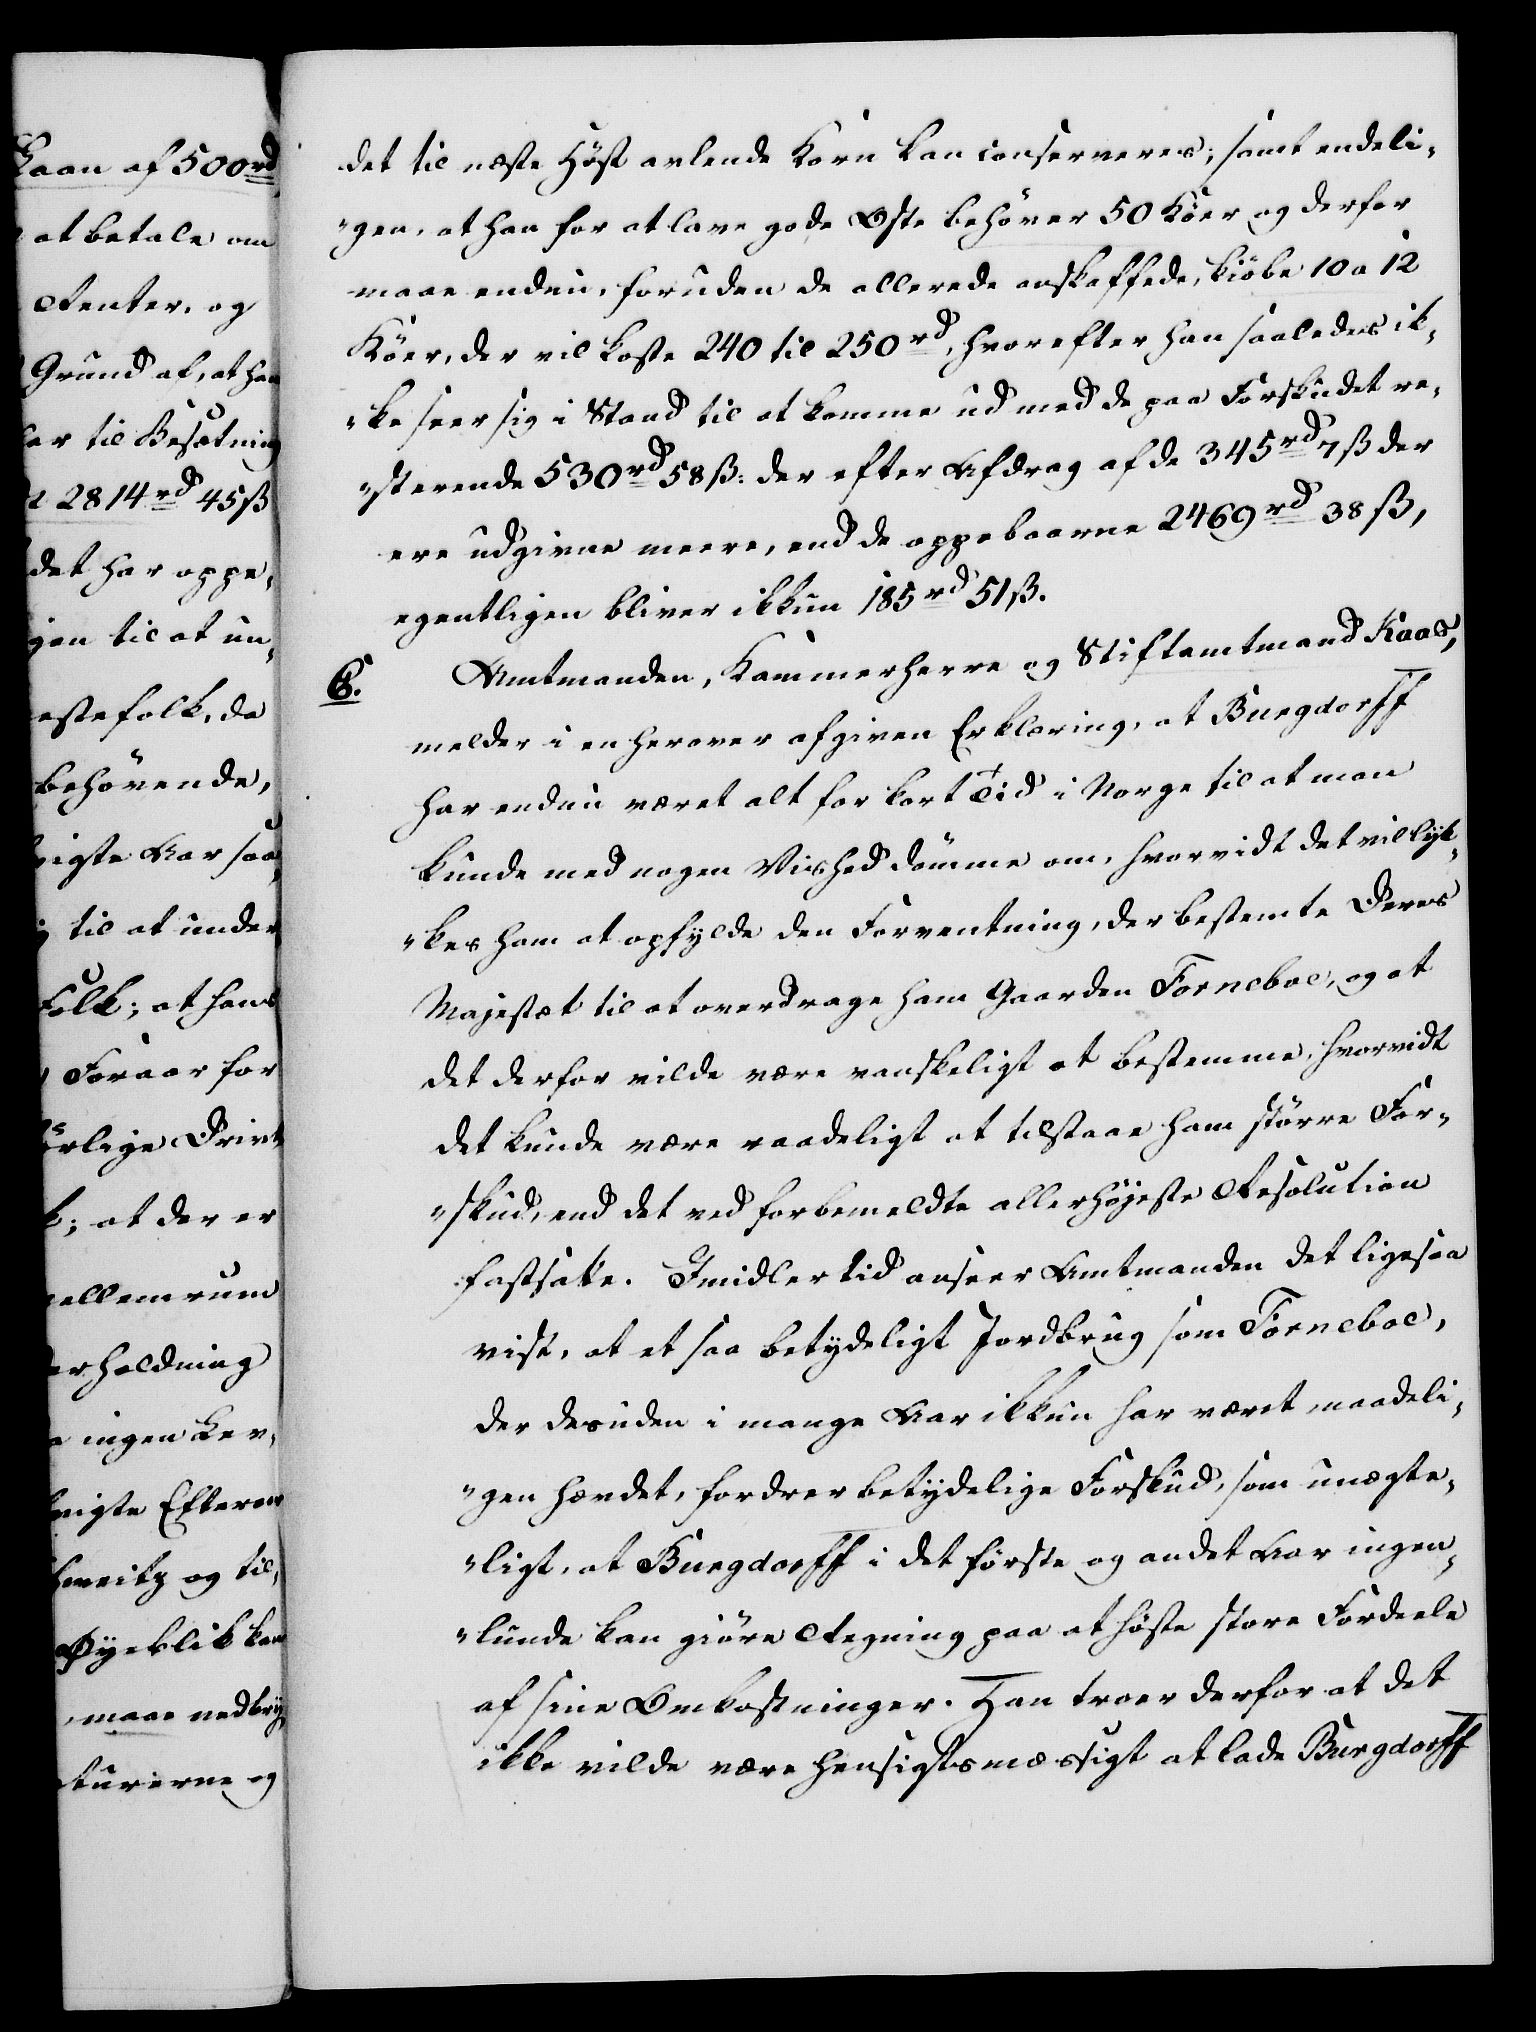 Laan af 500 rd
at betale om
Renter, og
Grund af, at han
ler til Besætning
2814 rd 45 ß
det har oppe,
gen til at un,
estefolk, da
behövende,
rigste Aar saa,
til at under
Folk; at hans
Foraar for
örlige Drivt
k; at der er
mellemrum
erholdning
ingen Lev,
rigste Efteraar
hweitz og til,
Øyeblik kan
maae nedbry,
turerne og
det til næste Höst avlende Korn kan conserveres; samt endeli,
"gen, at han for at lave gode Oste behöver 50 Köer og derfor
maae endnu, foruden de allerede anskaffede, kiöbe 10 a 12
Köer, der vil koste 240 til 250 rd, hvorefter han saaledes ik,
"ke seer sig i Stand til at komme ud med de paa Forskudet re,
"sterende 530 rd 58 ß: der efter Afdrag af de 345 rd 7 ß der
ere udgivne meere, end de oppebaarne 2469 rd 38 ß,
egentligen bliver ikkun 185 rd 51 ß.
6. Amtmanden, Kammerherre og Stiftamtmand Kaas,
melder i en herover afgiven Erklæring, at Burgdorff
har endnu været alt for kort Tid i Norge til at man
kunde med nogen Vished dömme om, hvorvidt det vil lyk,
"kes ham at opfylde den Forventning, der bestemte Deres
Majestæt til at overdrage ham Gaarden Forneboe, og at
det derfor vilde være vanskeligt at bestemme, hvorvidt
det kunde være raadeligt at tilstaae ham större For,
"skud, end det ved forbemeldte allerhöjeste Resolution
fastsatte. Imidlertid anseer Amtmanden det ligesaa
vist, at et saa betydeligt Jordbrug som Forneboe,
der desuden i mange Aar ikkun har været maadeli,
"gen hævdet, fordrer betydelige Forskud, som unægte,
"ligt, at Burgdorff i det förste og andet Aar ingen,
"lunde kan giöre Regning paa at höste store Fordeele
af sine Omkostninger. Han troer derfor at det
ikke vilde være hensigtsmæssigt at lade Burgdorff